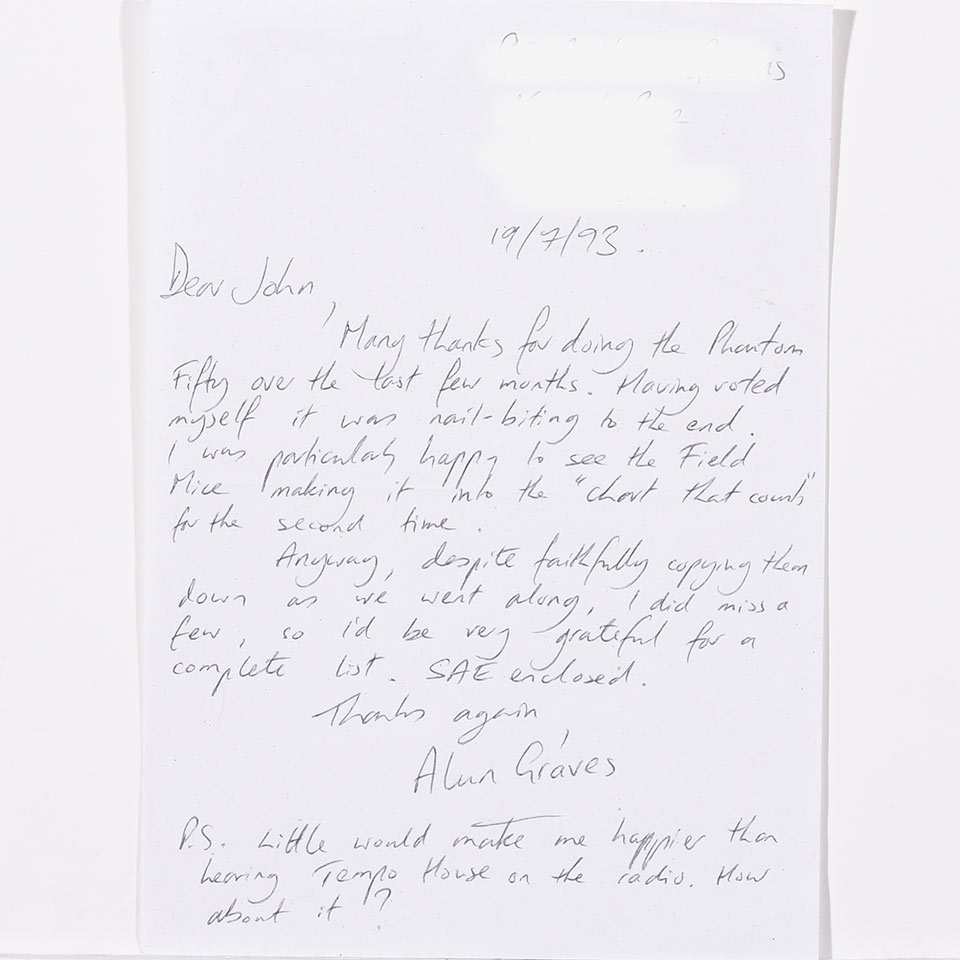 19/7/93.
Dear John,
Many thanks for doing the Phantom
Fifty over the last few months. Having voted
myself it was nail-biting to the end.
I was particularly happy to see the Field
Mice making it into the "chart that counts"
for the second time.
Anyway, despite faithfully copying them
down as we went along, I did miss a
few, so I'd be very grateful for a
complete list. SAE enclosed.
Thanks again,
Alun Graves
P.S. Little would make me happier than
hearing Tempo House on the radio. How
about it?